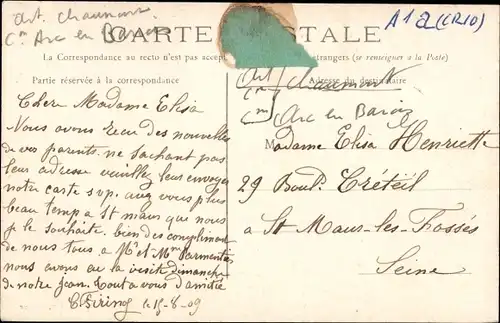 art. chaumont
Cⁿ Arc en Barrois
A1a (CR10)
CARTE POSTALE
La Correspondance au recto n'est pas accep étrangers (se renseigner à la Poste)
Partie réservée à la correspondance
Adresse du destinataire
Art chaumont
Arc en Barois
Chere Madame Elisa
Nous avons reau des nouvelles
de vos parents. ne sachant pas
leur adresse veuillez leur envoyer
notre carte svp. avez vous plus
beau temp a St maur que nous
je le souhaite. bien des compliment
de nous tous a Mr et Mme Parmentier
nous avons au la visite dimanche
de notre Jean. tout a vous d'amitie
le 15-8-09
Madame Elisa Henriette
29 Boul. Créteil
a St Maur-les-Fossés
Seine